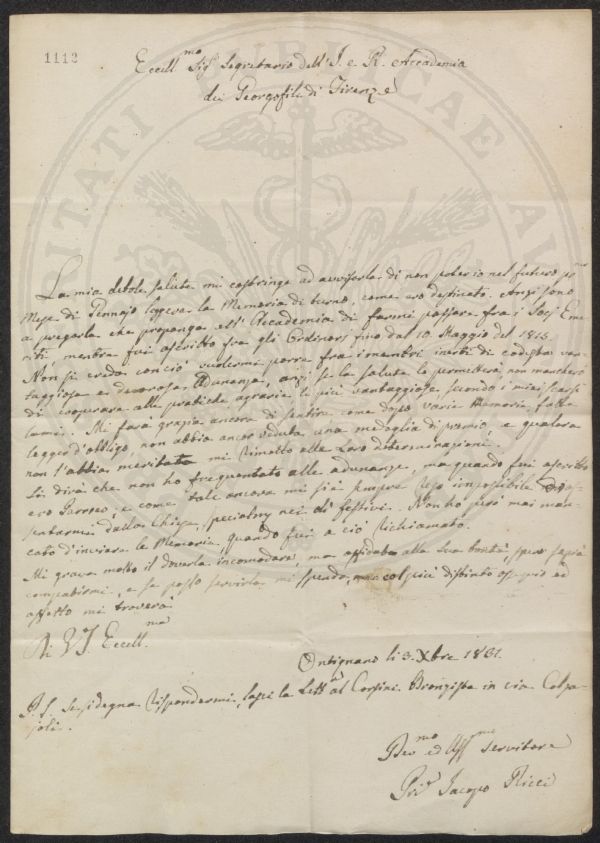 1112
Eccell.mo Sig.r Segretario dell'I. e R. Accademia
dei Georgofili di Firenze
La mia debole salute mi costringe ad avvisarla di non poter io nel futuro
Mese di Gennajo leggere la Memoria di turno, come ero destinato. Anzi sono
a pregarla che proponga all'Accademia di farmi passare fra i Socj Eme-
riti, mentre fui ascritto fra gli Ordinarj fino dal 10. Maggio del 1815.
Non si creda con ciò volermi porre fra i membri inerti di codesta van-
taggiosa e decorosa Adunanza, anzi se la salute lo permetterà, non mancherò
di cooperare alle pratiche agrarie le più vantaggiose secondo i miei scarsi
lumi. Mi farà grazia ancora di sentire come dopo varie Memorie fatte
legger d'obbligo, non abbia ancor veduta una medaglia di premio, e qualora
non l'abbia meritata mi rimetto alle Loro determinazioni.
Si dirà che non ho frequentato alle adunanze, ma quando fui ascritto
ero Parroco, e come tale ancora mi si è sempre reso impossibile
sentarmi dalla Chiesa, specialm. nei dì festivi. Non ho però mai man-
cato d'inviare le Memorie, quando fui a ciò richiamato.
Mi grava molto il doverla incomodare, ma affidato alla sua bontà, spero saprà
compatirmi, e se posso servirla mi spenda, ma col più distinto ossequio ed
affetto mi troverà
Di V.S. Eccell.ma
Ontignano li 3. Xbre 1831.
P.S. Se si degna rispondermi, lasci la Lett.a al Corsini Bronzista in via Calza-
joli.
Dev.mo ed Aff.mo Servitore
Jacopo Ricci